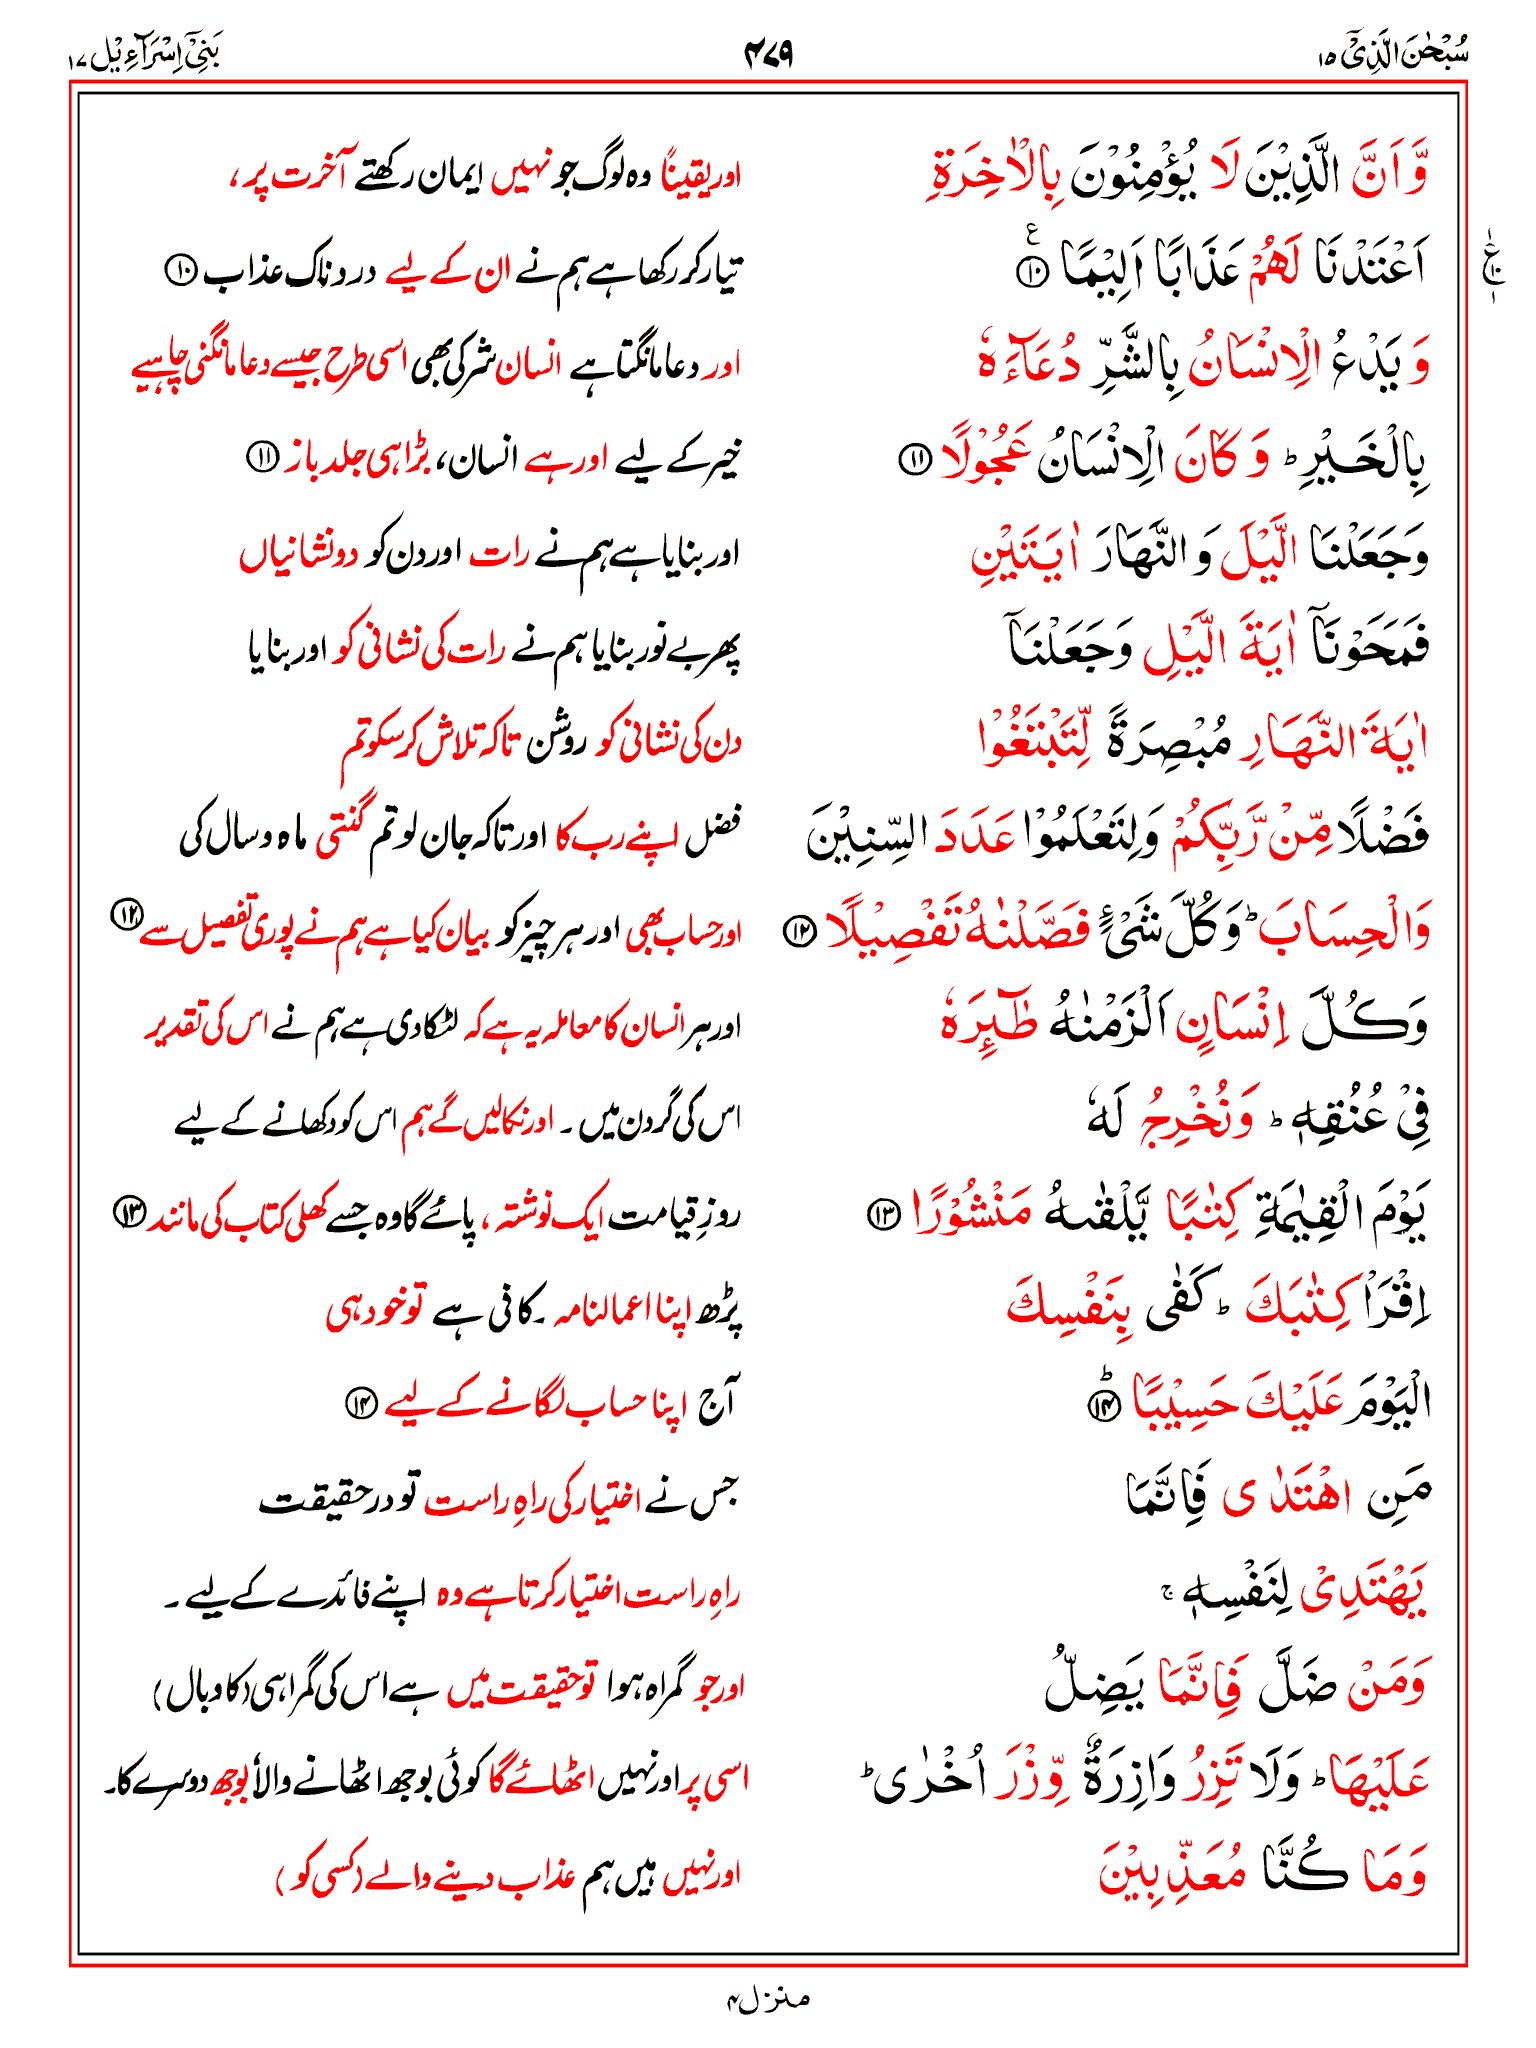 سُبْحٰنَ الَّذِیْۤ ۱۵
۴۷۹
بَنِیْۤ اِسْرَآءِیْل ۱۷
وَّ اَنَّ الَّذِیْنَ لَا یُؤْمِنُوْنَ بِالْاٰخِرَةِ
اور یقیناً وہ لوگ جو نہیں ایمان رکھتے آخرت پر،
اَعْتَدْنَا لَهُمْ عَذَابًا اَلِیْمًا ۧ ۱۰
تیار کر رکھا ہے ہم نے ان کے لیے دردناک عذاب ۱۰
ع ۱۰ ۱
وَ یَدْعُ الْاِنْسَانُ بِالشَّرِّ دُعَآءَهٗ
اور دعا مانگتا ہے انسان شر کی بھی اسی طرح جیسے دعا مانگنی چاہیے
بِالْخَیْرِ ؕ وَ كَانَ الْاِنْسَانُ عَجُوْلًا ۱۱
خیر کے لیے اور ہے انسان، بڑا ہی جلد باز ۱۱
وَجَعَلْنَا الَّیْلَ وَ النَّهَارَ اٰیَتَیْنِ
اور بنایا ہے ہم نے رات اور دن کو دو نشانیاں
فَمَحَوْنَاۤ اٰیَةَ الَّیْلِ وَجَعَلْنَاۤ
پھر بے نور بنایا ہم نے رات کی نشانی کو اور بنایا
اٰیَةَ النَّهَارِ مُبْصِرَةً لِّتَبْتَغُوْا
دن کی نشانی کو روشن تاکہ تلاش کر سکو تم
فَضْلًا مِّنْ رَّبِّكُمْ وَلِتَعْلَمُوْا عَدَدَ السِّنِیْنَ
فضل اپنے رب کا اور تاکہ جان لو تم گنتی ماہ و سال کی
وَالْحِسَابَ ؕ وَكُلَّ شَیْءٍ فَصَّلْنٰهُ تَفْصِیْلًا ۱۲
اور حساب بھی اور ہر چیز کو بیان کیا ہے ہم نے پوری تفصیل سے ۱۲
وَكُلَّ اِنْسَانٍ اَلْزَمْنٰهُ طٰٓىِٕرَهٗ
اور ہر انسان کا معاملہ یہ ہے کہ لٹکا دی ہے ہم نے اس کی تقدیر
فِیْ عُنُقِهٖ ؕ وَنُخْرِجُ لَهٗ
اس کی گردن میں ۔ اور نکالیں گے ہم اس کو دکھانے کے لیے
یَوْمَ الْقِیٰمَةِ كِتٰبًا یَّلْقٰىهُ مَنْشُوْرًا ۱۳
روزِ قیامت ایک نوشتہ، پائے گا وہ جسے کھلی کتاب کی مانند ۱۳
اِقْرَاْ كِتٰبَكَ ؕ كَفٰی بِنَفْسِكَ
پڑھ اپنا اعمالنامہ ۔ کافی ہے تو خود ہی
الْیَوْمَ عَلَیْكَ حَسِیْبًا ؕ ۱۴
آج اپنا حساب لگانے کے لیے ۱۴
مَنِ اهْتَدٰی فَاِنَّمَا
جس نے اختیار کی راہِ راست تو درحقیقت
یَهْتَدِیْ لِنَفْسِهٖ ۚ
راہِ راست اختیار کرتا ہے وہ اپنے فائدے کے لیے ۔
وَمَنْ ضَلَّ فَاِنَّمَا یَضِلُّ
اور جو گمراہ ہوا تو حقیقت میں ہے اس کی گمراہی (کا وبال)
عَلَیْهَا ؕ وَلَا تَزِرُ وَازِرَةٌ وِّزْرَ اُخْرٰی ؕ
اسی پر اور نہیں اٹھائے گا کوئی بوجھ اٹھانے والا بوجھ دوسرے کا۔
وَمَا كُنَّا مُعَذِّبِیْنَ
اور نہیں ہیں ہم عذاب دینے والے (کسی کو)
منزل ۴